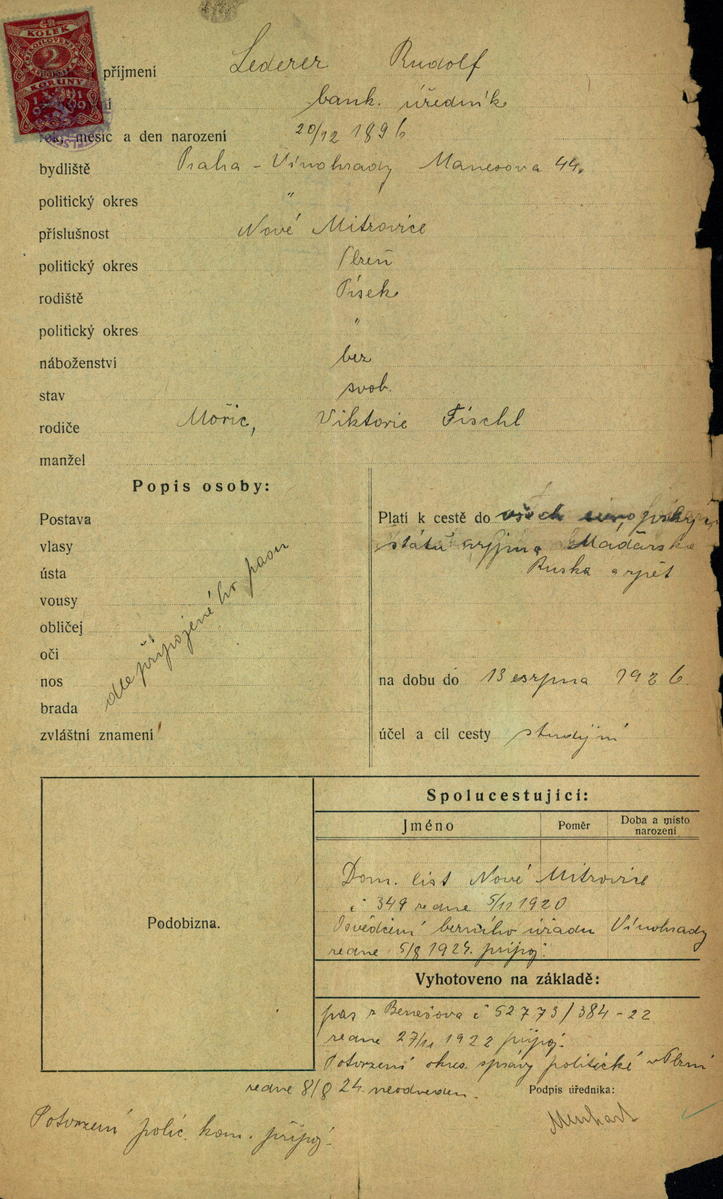 KOLEK
2
KORUNY
příjmení Lederer Rudolf
bank. úředník
rok, měsíc a den narození 20/12 1896
bydliště Praha - Vinohrady Manesova 44.
politický okres "
příslušnost Nové Mitrovice
politický okres Plzeň
rodiště Písek
politický okres "
náboženství bez
stav svob.
rodiče Mořic, Viktorie Fischl
manžel
Popis osoby:
Postava
vlasy
ústa
vousy
obličej
oči
nos
brada
zvláštní znamení
dle připojeného pasu
Platí k cestě do všech evropských
států vyjma Maďarska
Ruska a zpět
na dobu do 13 srpna 1926.
účel a cíl cesty studijní
Podobizna.
Spolucestující:
Jméno Poměr Doba a místo narození
Dom. list Nové Mitrovice
č 349 ze dne 5/11 1920
Osvědčení berního úřadu Vinohrady
ze dne 5/8 1924. připoj.
Vyhotoveno na základě:
pas z Benešova č 52773/384-22
ze dne 27/11 1922 připoj.
Potvrzení okres. správy politické v Plzni
ze dne 8/8 24 neodveden.
Podpis úředníka:
Potvrzení polic. kom. připoj.